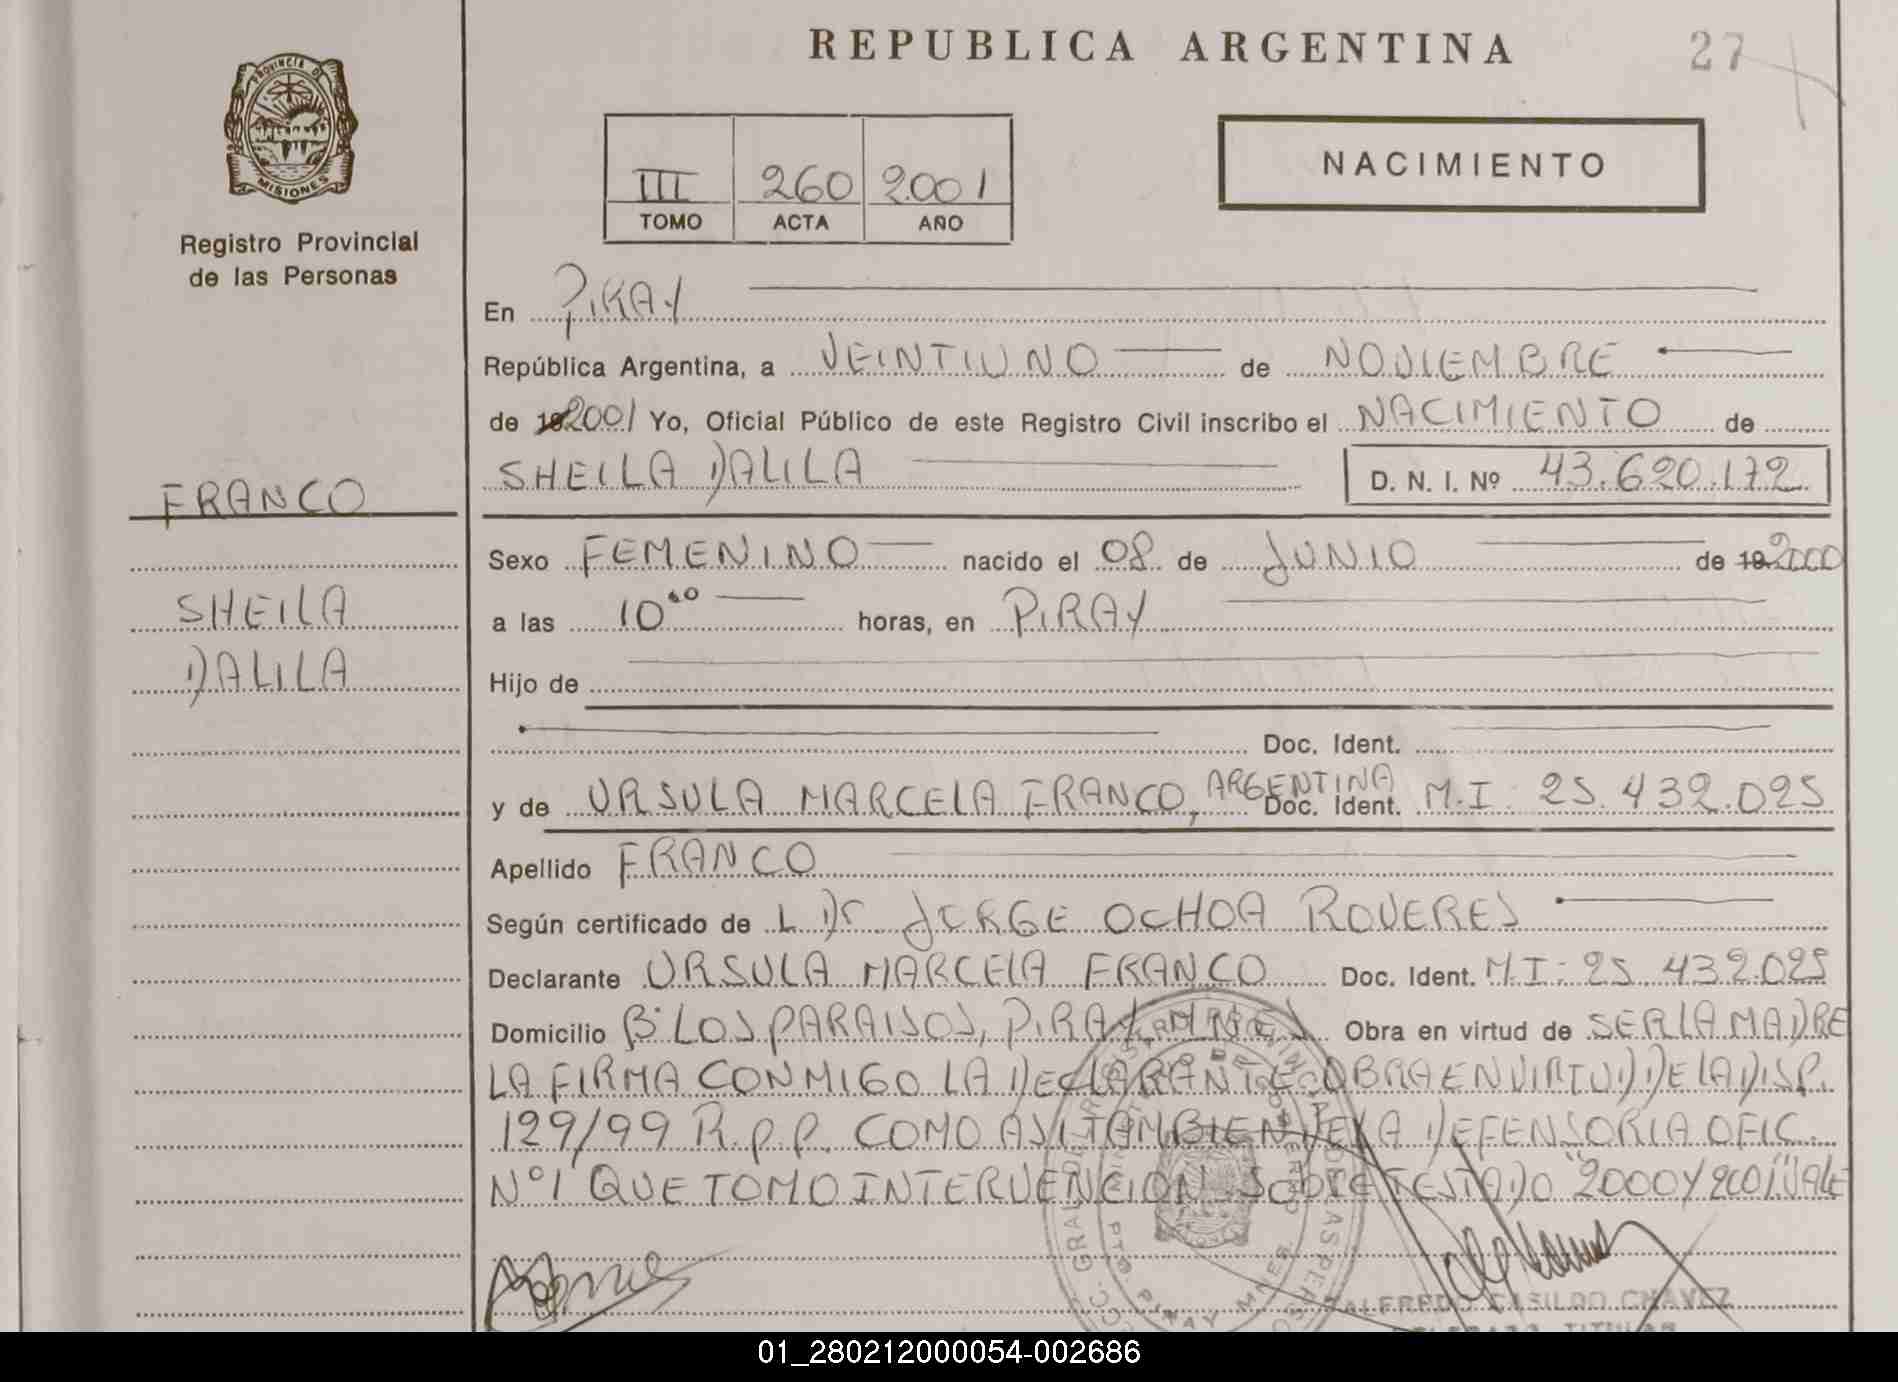 REPUBLICA ARGENTINA
27
PROVINCIA DE
MISIONES
Registro Provincial
de las Personas
III 260 2.001
TOMO ACTA AÑO
NACIMIENTO
En PIRAY
República Argentina, a VEINTIUNO de NOVIEMBRE
de 2001 Yo, Oficial Público de este Registro Civil inscribo el NACIMIENTO de
SHEILA DALILA D. N. I. Nº 43.620.172
FRANCO
SHEILA
DALILA
Sexo FEMENINO nacido el 08 de JUNIO de 19 2000
a las 10 horas, en PIRAY
Hijo de
Doc. Ident.
y de URSULA MARCELA FRANCO, ARGENTINA Doc. Ident. M.I: 25.432.025
Apellido FRANCO
Según certificado de L Dr JORGE OCHOA ROVERES
Declarante URSULA MARCELA FRANCO Doc. Ident. M.I: 25.432.025
Domicilio Bº LOS PARAISOS, PIRAY MNES Obra en virtud de SER LA MADRE
LA FIRMA CONMIGO LA DECLARANTE OBRA EN VIRTUD DE LA DISP.
129/99 R.P.P. COMO ASI TAMBIEN DE LA DEFENSORIA OFIC.
Nº1 QUE TOMO INTERVENCION SOBRE TESTADO "2000 Y 2001" VALE
PTO PIRAY MNES
ALFREDO CASILDO CHAVEZ
DELEGADO TITULAR
01_280212000054-002686